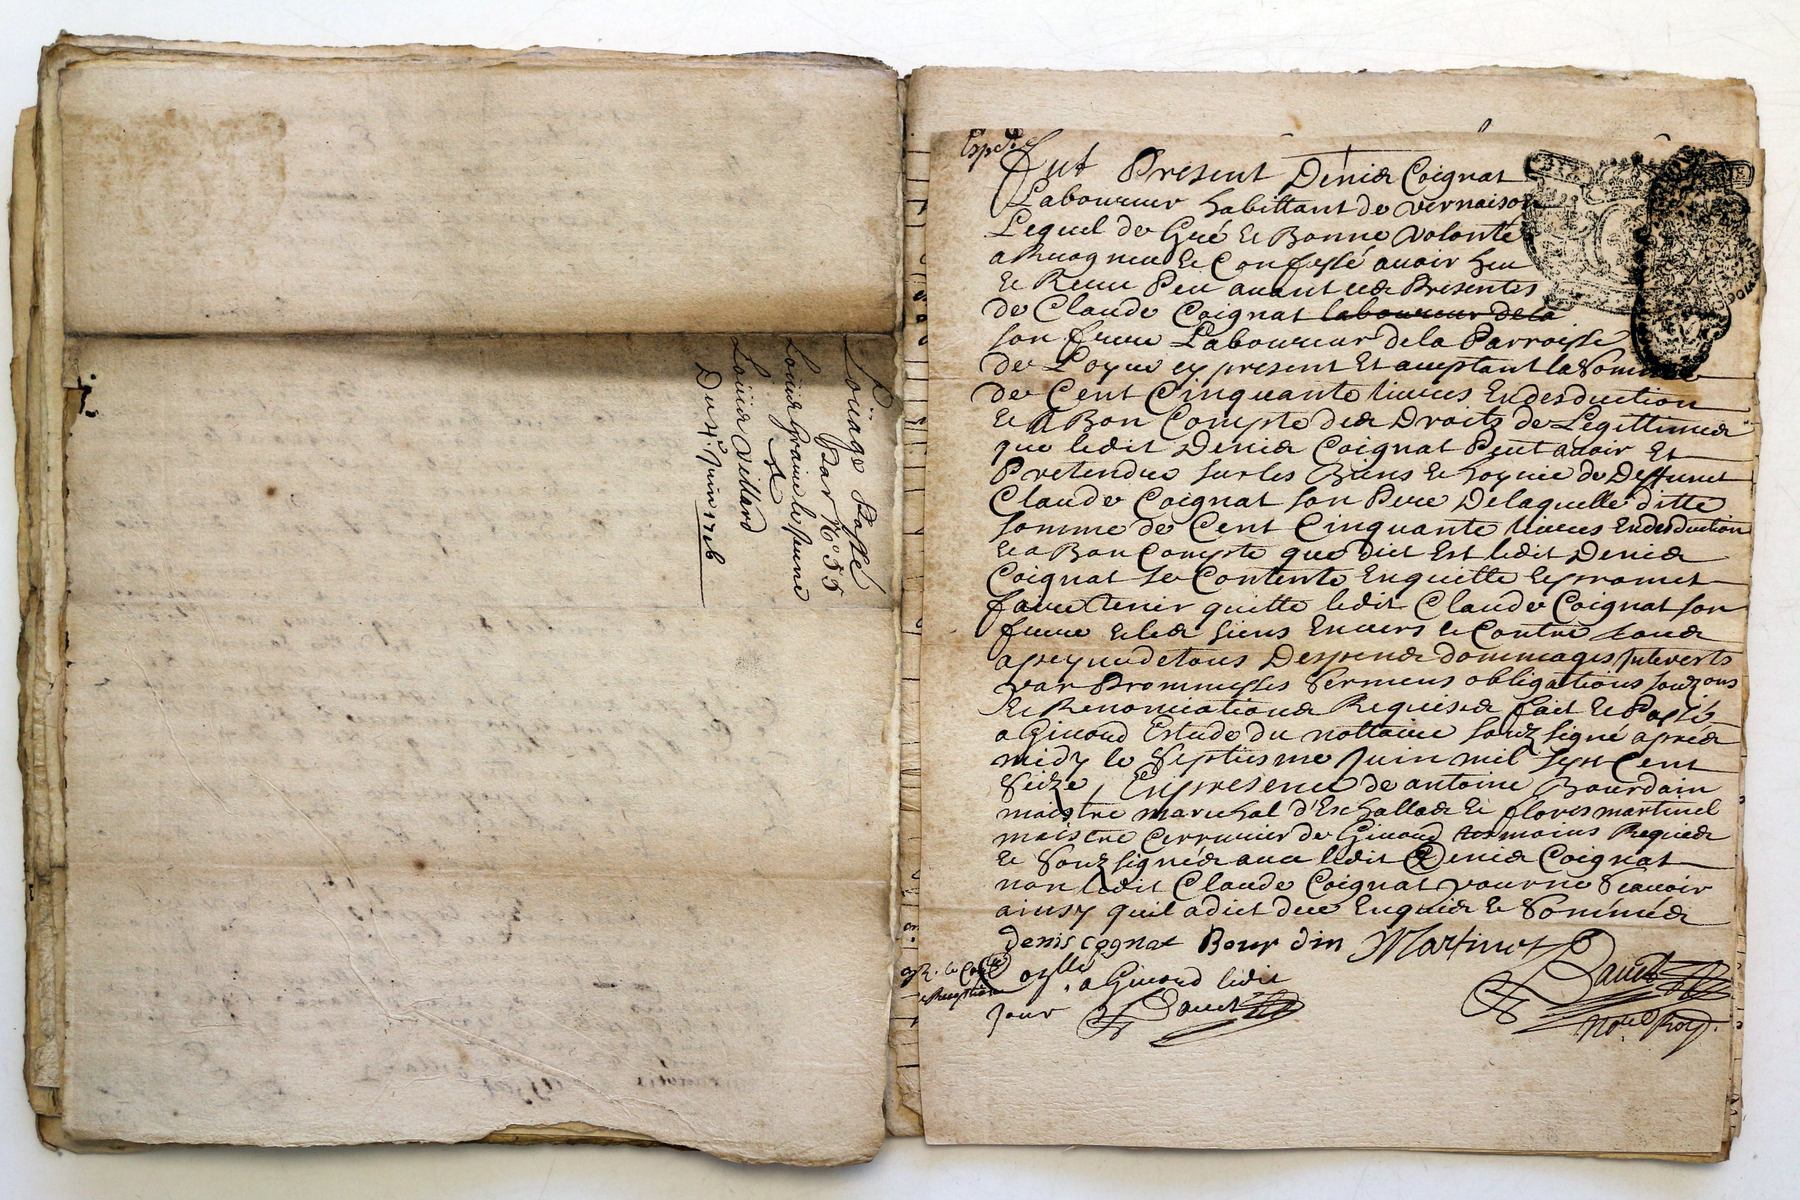 Loüage Passé
Par N° 55
Louis Graine le jeune
A
Loüis Villard
Du 4e Juin 1716
Expdié
Fut Present Denis Coignat
Laboureur habittant de Vernaison
Lequel de Gré Et Bonne Volonté
a Recogneu Et Confessé auoir heu
Et Receu Peu auant ces Presentes
de Claude Coignat laboureur de la
son frere Laboureur de la Parroisse
de Loyre cy present Et acceptant la Somme
de Cent Cinquante liures En desduction
Et A Bon Compte des Droits de Legittimes
que ledit Denis Coignat Peut auoir Et
Pretendre sur les Biens Et hoyrie de Deffunct
Claude Coignat son Pere De laquelle ditte
somme de Cent Cinquante liures En desduction
Et a Bon Compte que dict Est ledit Denis
Coignat se Contente En quitte Et promet
faire tenir quitte ledit Claude Coignat son
frere et les siens Enuers Et Contre tous
a peyne de tous Despens dommages Interests
par Prommesses Sermens obligations
Et Renonciations Requises fait Et Passé
a Giuord Estude du nottaire souz signé apres
midy le Septiesme Juin mil sept Cent
Seize, En presence de antoine Bourdain
maistre marechal d'Eschallas Et floris martinel
maistre Cerrurier de Giuord tesmoins Requis
Et Souz signés auec ledit Denis Coignat
non ledit Claude Coignat pour ne Scauoir
ainsy quil a dict de ce Enquis Et Sommés
denis cognat Bour din Martinet
a Giuord ledit
jour
No.re Roy.